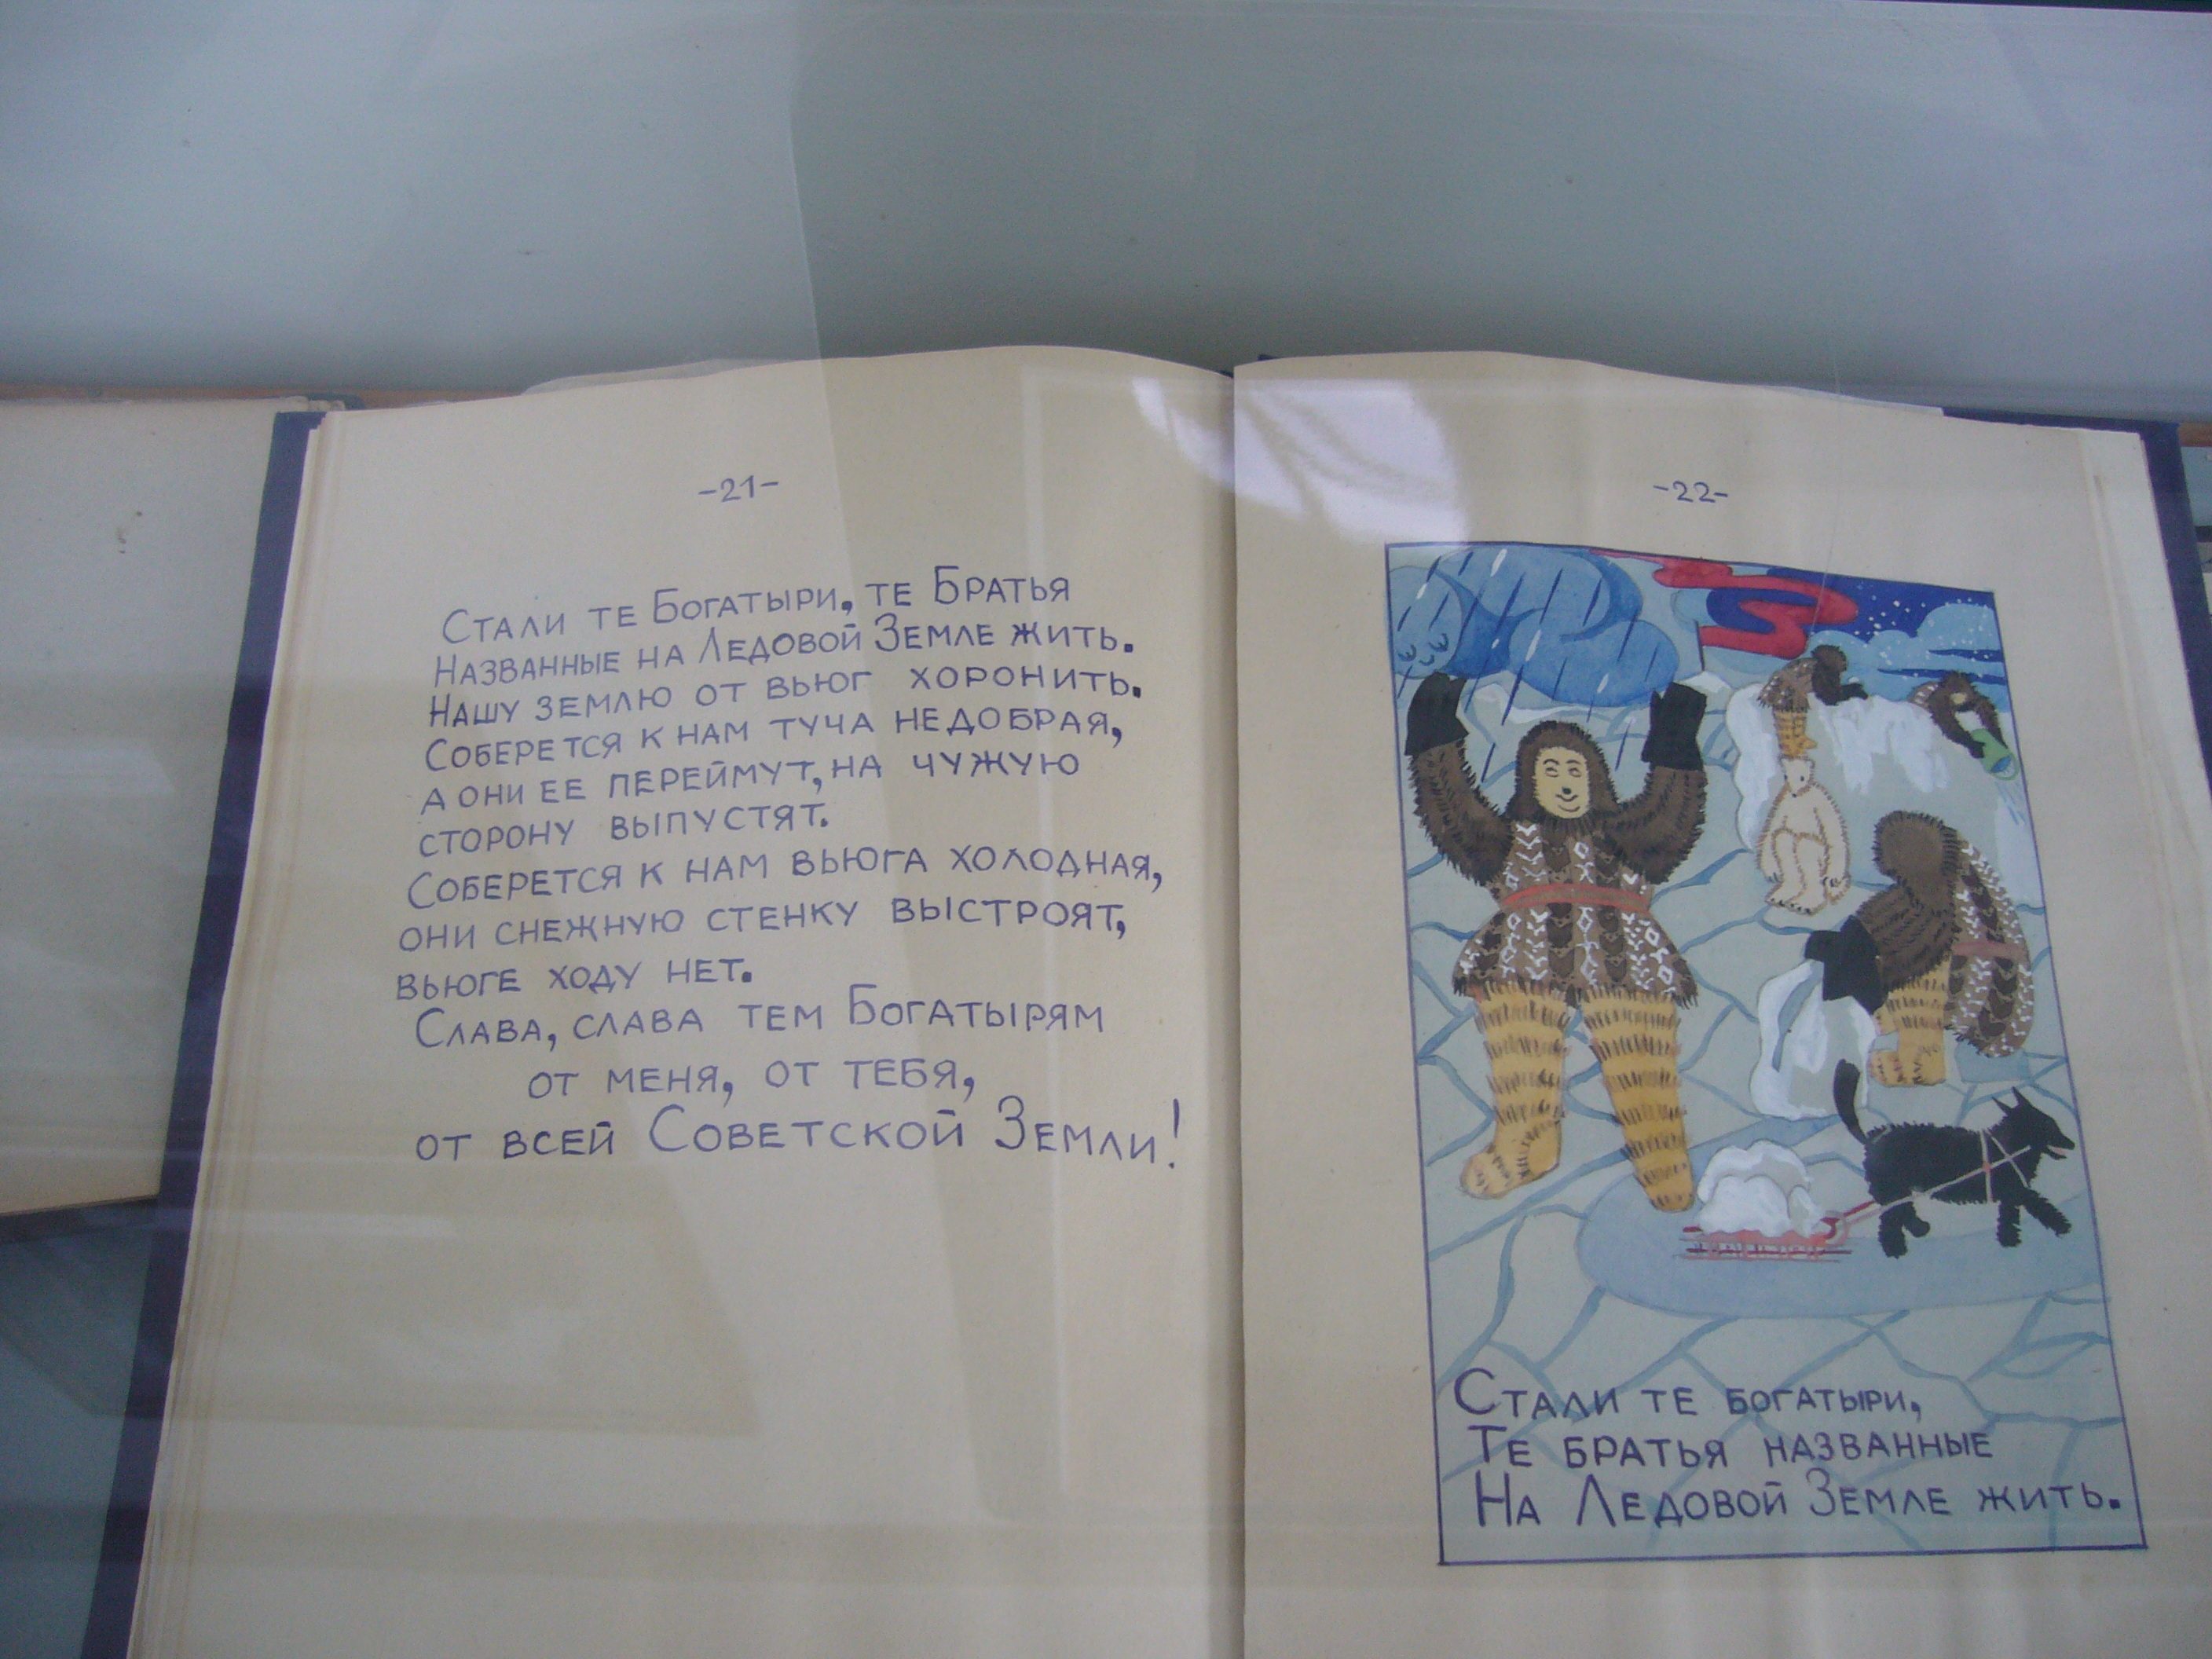 -21-
Стали те Богатыри, те Братья
Названные на Ледовой Земле жить.
Нашу землю от вьюг хоронить.
Соберется к нам туча недобрая,
а они ее переймут, на чужую
сторону выпустят.
Соберется к нам вьюга холодная,
они снежную стенку выстроят,
вьюге ходу нет.
Слава, слава тем Богатырям
от меня, от тебя,
от всей Советской Земли!
-22-
Стали те богатыри,
Те братья названные
На Ледовой Земле жить.